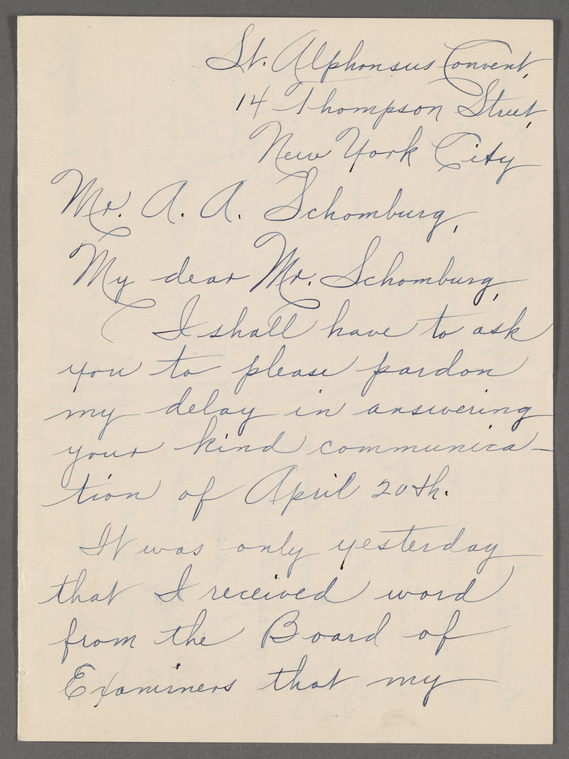 St. Alphonsus Convent,
14 Thompson Street,
New York City
Mr. A. A. Schomburg,
My dear Mr. Schomburg,
I shall have to ask
you to please pardon
my delay in answering
your kind communica-
tion of April 20th.
It was only yesterday
that I received word
from the Board of
Examiners that my